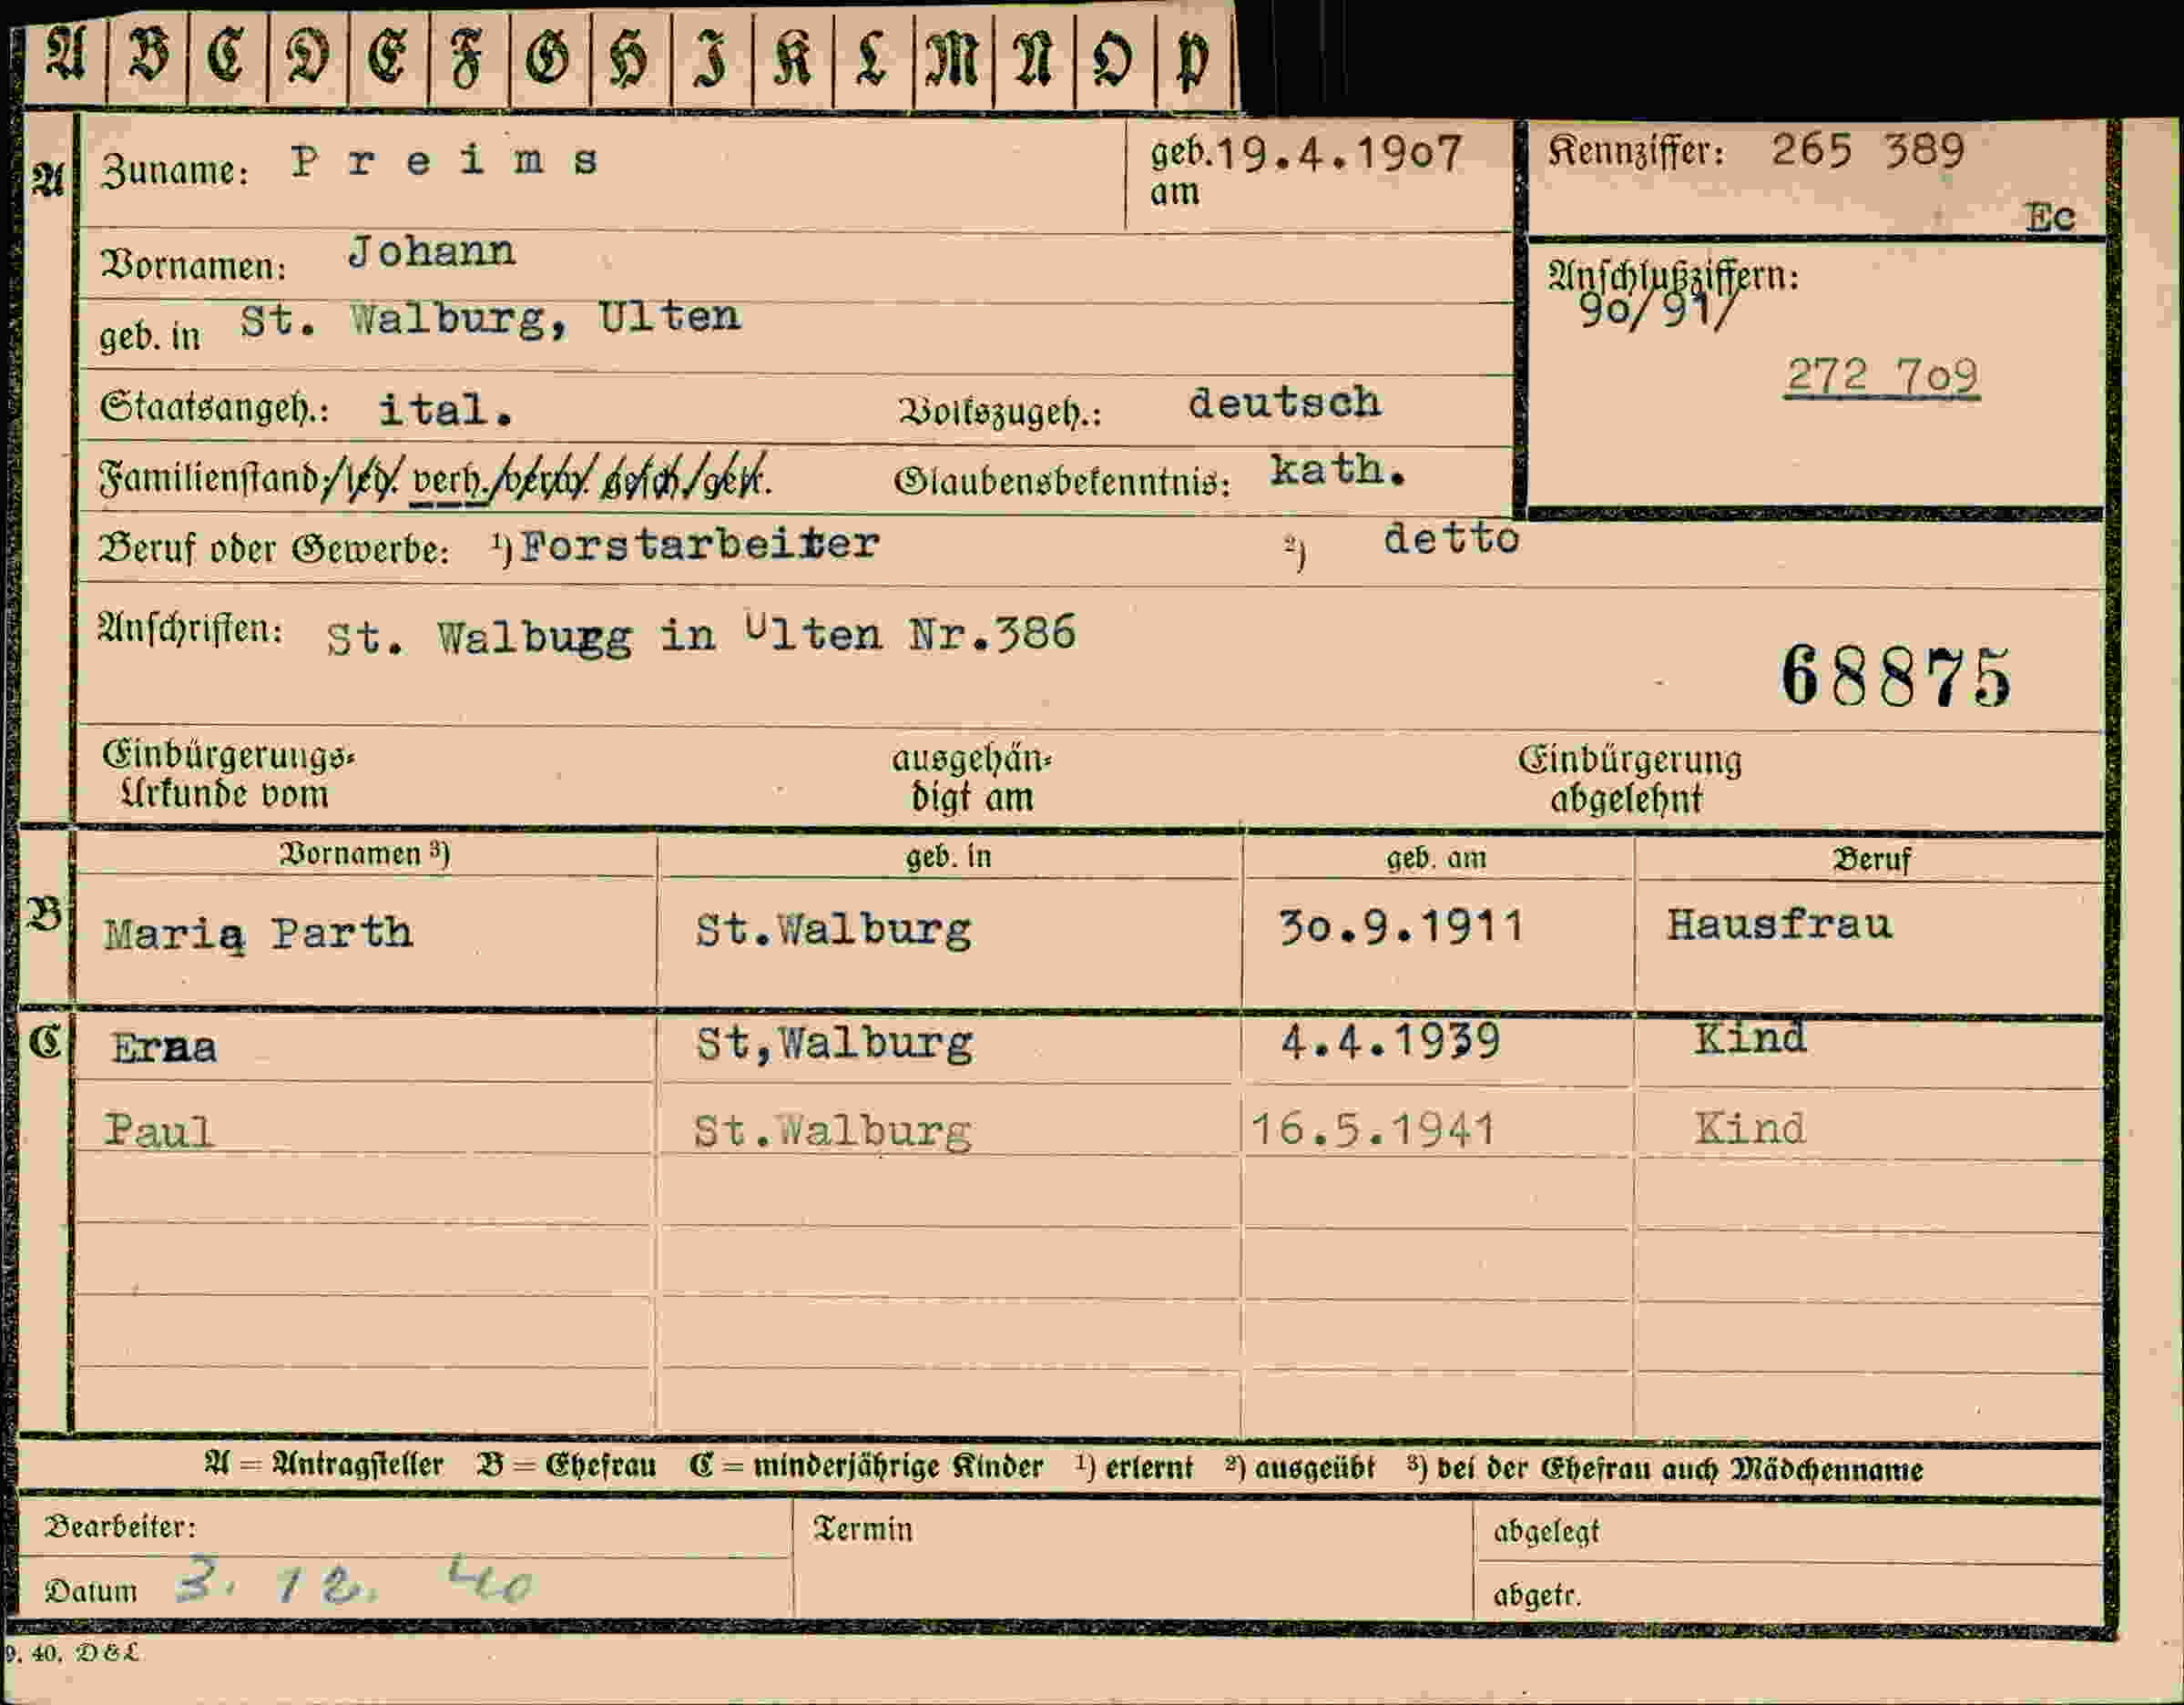 A B C D E F G H I K L M N O P
A Zuname: Preims geb. am 19.4.1907 Kennziffer: 265 389
Ec
Vornamen: Johann Anschlußziffern:
90/91/
geb. in St. Walburg, Ulten
272 709
Staatsangeh.: ital. Volkszugeh.: deutsch
Familienstand: led. verh. verw. gesch. getr. Glaubensbekenntnis: kath.
Beruf oder Gewerbe: ¹) Forstarbeiter ²) detto
Anschriften: St. Walburg in Ulten Nr.386
68875
Einbürgerungs-Urkunde vom ausgehändigt am Einbürgerung abgelehnt
Vornamen ³) geb. in geb. am Beruf
B Maria Parth St.Walburg 30.9.1911 Hausfrau
C Erna St,Walburg 4.4.1939 Kind
Paul St.Walburg 16.5.1941 Kind
A = Antragsteller B = Ehefrau C = minderjährige Kinder ¹) erlernt ²) ausgeübt ³) bei der Ehefrau auch Mädchenname
Bearbeiter: Termin abgelegt
Datum 3. 12. 40 abgetr.
9. 40. D&L